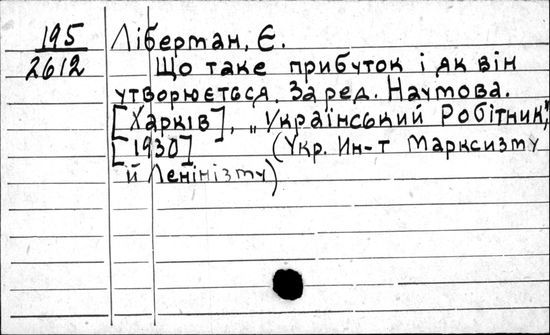 195
2612
Ліберман, Є.
Що таке прибуток і як він
утворюється. За ред. Наумова.
[Харків], „Український Робітник",
[1930] (Укр. Ин-т Марксизму
й Ленінізму)